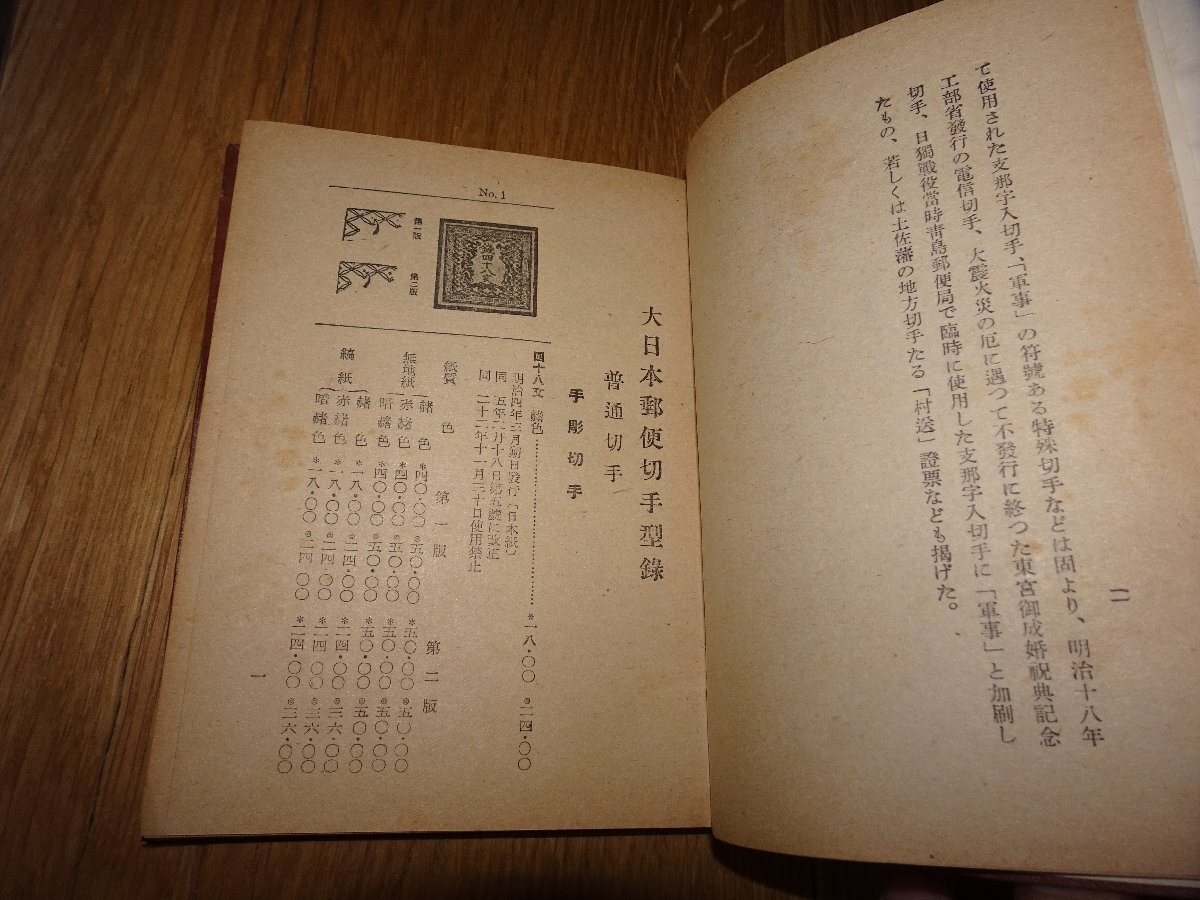 二
て使用された支那字入切手、「軍事」の符號ある特殊切手などは固より、明治十八年
工部省發行の電信切手、大震火災の厄に遇つて不發行に終つた東宮御成婚祝典記念
切手、日獨戰役當時靑島郵便局で臨時に使用した支那字入切手に「軍事」と加刷し
たもの、若しくは土佐藩の地方切手たる「村送」證票なども揭げた。
大日本郵便切手型錄
普通切手
手彫切手
No. 1
第一版
第二版
四十八文 赭色……………*一八・〇〇 ◎二四・〇〇
明治四年三月朔日發行〔日本紙〕
同 五年二月十八日第五號に改正
同 二十二年十一月三十日使用禁止
紙質 色 第一版 第二版
無地紙 赭色 *四〇・〇〇 ◎五〇・〇〇 *五〇・〇〇 ◎五〇・〇〇
赤赭色 *四〇・〇〇 ◎五〇・〇〇 *五〇・〇〇 ◎五〇・〇〇
暗赭色 *四〇・〇〇 ◎五〇・〇〇 *五〇・〇〇 ◎五〇・〇〇
縞紙 赭色 *一八・〇〇 ◎二四・〇〇 *二四・〇〇 ◎三六・〇〇
赤赭色 *一八・〇〇 ◎二四・〇〇 *二四・〇〇 ◎三六・〇〇
暗赭色 *一八・〇〇 ◎二四・〇〇 *二四・〇〇 ◎三六・〇〇
一